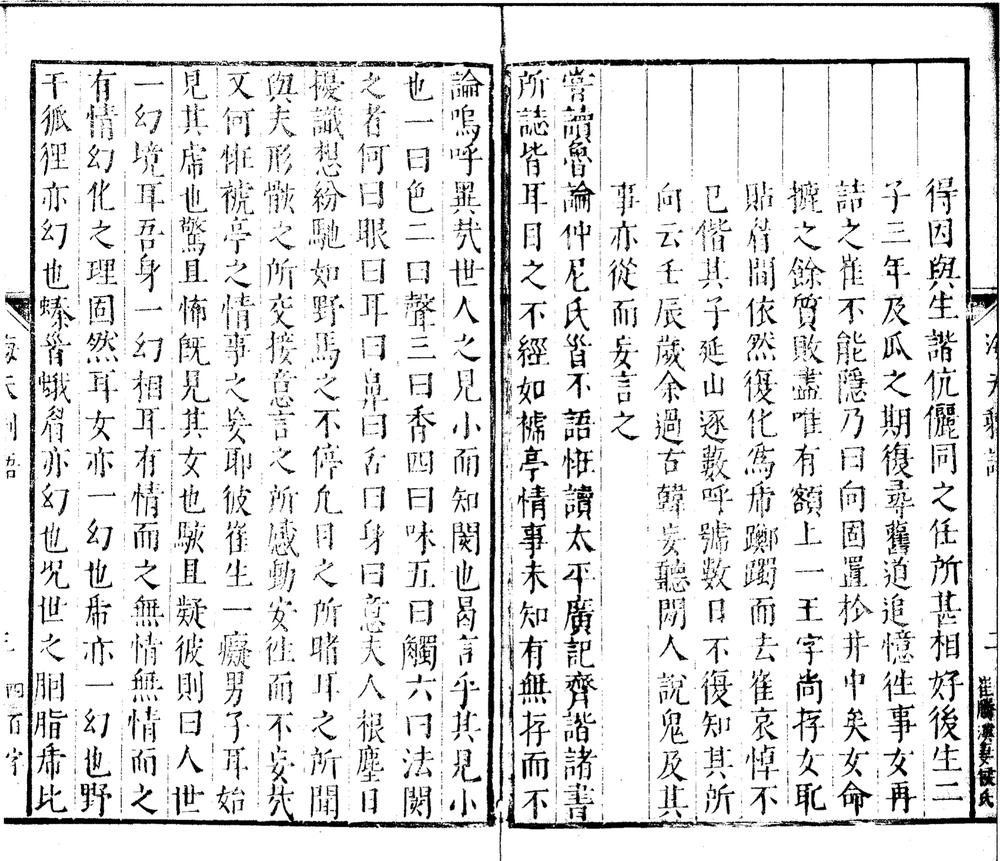 得因與生諧伉儷同之任所甚相好後生二
子三年及瓜之期復尋舊道追憶徃事女再
詰之崔不能隱乃曰向固置於井中矣女命
攄之餘質敗盡唯有額上一王字尚存女恥
貼眉間依然復化為虎躑躅而去崔哀悼不
已偕其子延山逐藪呼號數日不復知其所
向云壬辰歲余過古韓妄聽閑人說鬼及其
事亦從而妄言之
嘗讀魯論仲尼氏皆不語怪讀太平廣記齊諧諸書
所誌皆耳目之不經如褫亭情事未知有無存而不
論嗚呼異哉世人之見小而知闋也曷言乎其見小
也一曰色二曰聲三曰香四曰味五曰觸六曰法闋
之者何曰眼曰耳曰鼻曰舌曰身曰意夫人根塵日
擾識想紛馳如野馬之不停凡目之所睹耳之所聞
與夫形骸之所交接意言之所感動安徃而不妄哉
又何怪褫亭之情事之妄耶彼崔生一癡男子耳始
見其虎也驚且怖既見其女也駭且疑彼則曰人世
一幻境耳吾身一幻相耳有情而之無情無情而之
有情幻化之理固然耳女亦一幻也虎亦一幻也野
干狐狸亦幻也螓首蛾眉亦幻也咒世之胭脂虎比
二
崔勝漢妻披氏
四百字